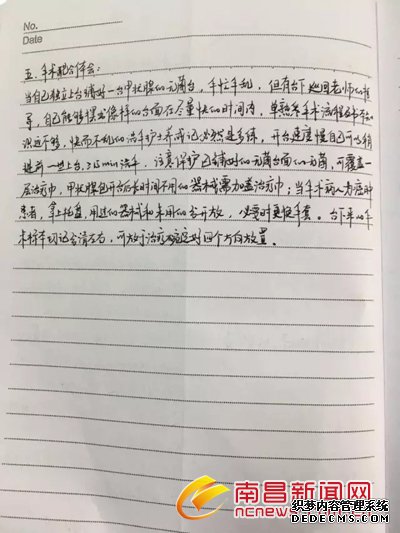 No.
Date
五、手术配合体会：
当自己独立上台铺好一台甲状腺的无菌台，手忙手乱，但有台下巡回老师的指
导，自己能够摆出像样的台面在尽量快的时间内，单熟悉手术流程还不
识远不够，快而不乱的洗手护士养成记必然是多练，开台速度慢自己可以稍
提前一些上台，≥15min洗手，注意保护已铺好的无菌台面的无菌，可覆盖一
层治疗巾，甲状腺包开台后长时间不用的器械需加盖治疗巾；当手术病人为
患者，拿上托盘，用过的器械和未用的分开放，必要时更换手套。台下
标本切记分清左右，开放 治疗 对四个方向放置。
南昌新闻网
ncnews
织梦内容管理系统
DEDECMS.COM